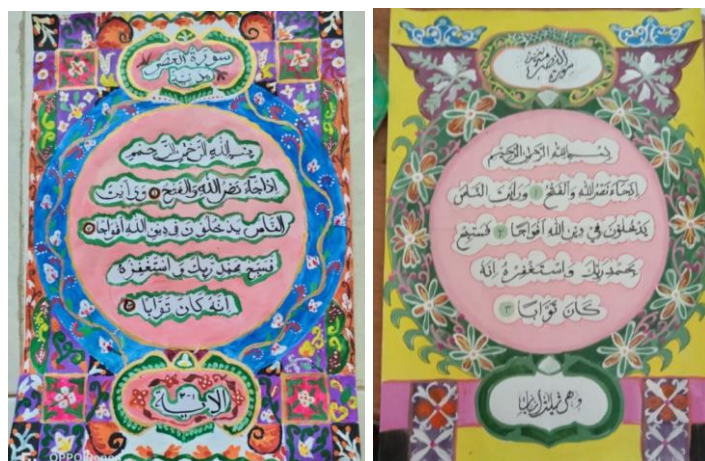 سورة النصر
مدنية
بسم الله الرحمن الرحيم
إذا جاء نصر الله والفتح ١ ورأيت
الناس يدخلون في دين الله أفواجا ٢
فسبح بحمد ربك واستغفره
إنه كان توابا ٣
١-٣
الاية
OPPO
سورة النصر مدنية
بسم الله الرحمن الرحيم
إذا جاء نصر الله والفتح ١ ورأيت الناس
يدخلون في دين الله أفواجا ٢ فسبح
بحمد ربك واستغفره إنه
كان توابا ٣
وهي ثلاث آيات